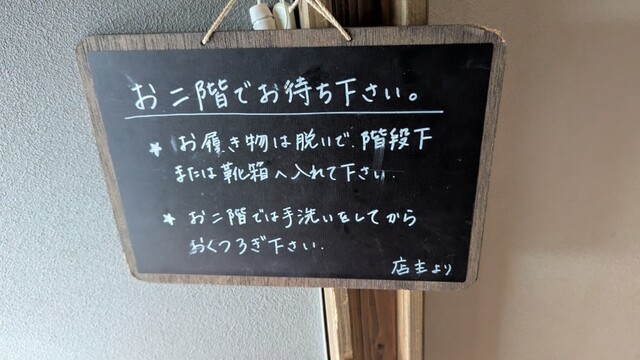 お二階でお待ち下さい。
★ お履き物は脱いで、階段下
または靴箱へ入れて下さい.
★ お二階では手洗いをしてから
おくつろぎ下さい.
店主より